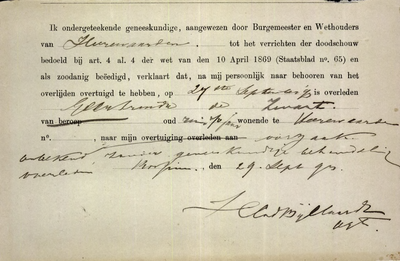 Ik ondergeteekend geneeskundige, aangewezen door Burgemeester en Wethouders
van Heerewaarden . tot het verrichten der doodschouw
bedoeld bij art. 4 al. 4 der wet van den 10 April 1869 (Staatsblad no. 65) en
als zoodanig beëedigd, verklaart dat, na mij persoonlijk naar behooren van het
overlijden overtuigd te hebben, op 27sten September is overleden
Geertruida de Zwart.
van beroep oud wonende te Heerewaarden
no. , naar mijn overtuiging overleden aan oorzaak
onbekend zonder geneeskundige behandeling
overleden Rossum, den 29 Sept 90.
Bijlandt
Arts.